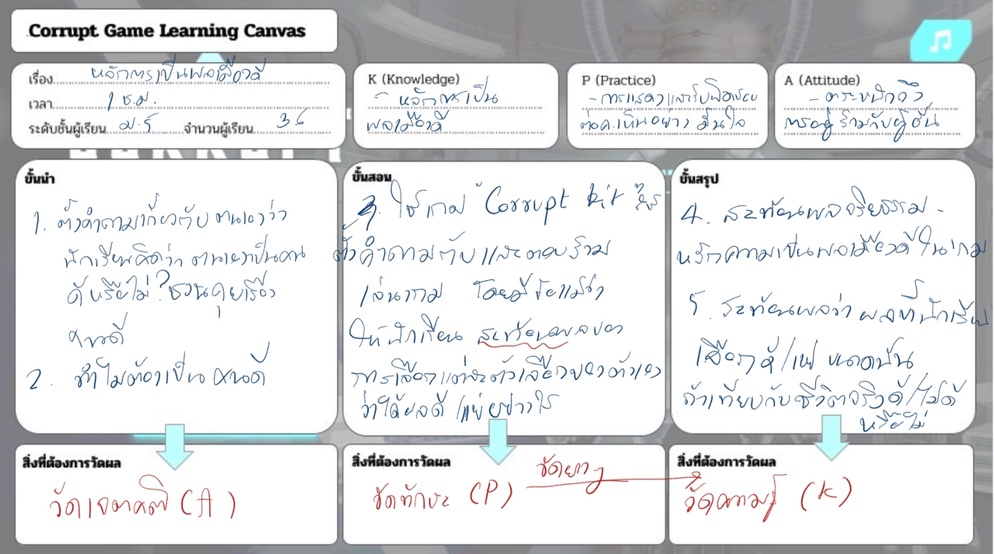 Corrupt Game Learning Canvas
เรื่อง หลักการเป็นพลเมืองดี
เวลา 1 ช.ม.
ระดับชั้นผู้เรียน ม.5 จำนวนผู้เรียน 36
K (Knowledge)
- หลักการเป็น
พลเมืองดี
P (Practice)
- การแสดง และรับผิดชอบ
ต่อค.เห็นอย่าง มั่นใจ
A (Attitude)
- ตระหนักถึง
การอยู่ร่วมกับผู้อื่น
ขั้นนำ
1. ตั้งคำถามเกี่ยวกับ ตนเองว่า
นักเรียนคิดว่า ตนเองเป็นคน
ดีหรือไม่? ชวนคุยเรื่อง
คนดี
2. ทำไมต้องเป็น คนดี
ขั้นสอน
3. ใช้เกม Corrupt kit
ตั้งคำถามกับ และตอบร่วม
เล่นเกม โดยมี
ให้นักเรียน สะท้อนผลของ
การเลือกแต่ละตัวเลือกของตัวเอง
ว่าได้ผลดี/แย่ อย่างไร
ขั้นสรุป
4. สะท้อนผลจริยธรรม -
หลักความเป็นพลเมืองดี ในเกม
5. สะท้อนผลว่า ผลที่นักเรียน
เลือกดี/แย่ ขนาดนั้น
ถ้าเทียบกับชีวิตจริงดี/ไม่ดี
หรือไม่
สิ่งที่ต้องการวัดผล
วัดเจตคติ (A)
สิ่งที่ต้องการวัดผล
วัดทักษะ (P)
วัดยาก
สิ่งที่ต้องการวัดผล
วัดความรู้ (K)